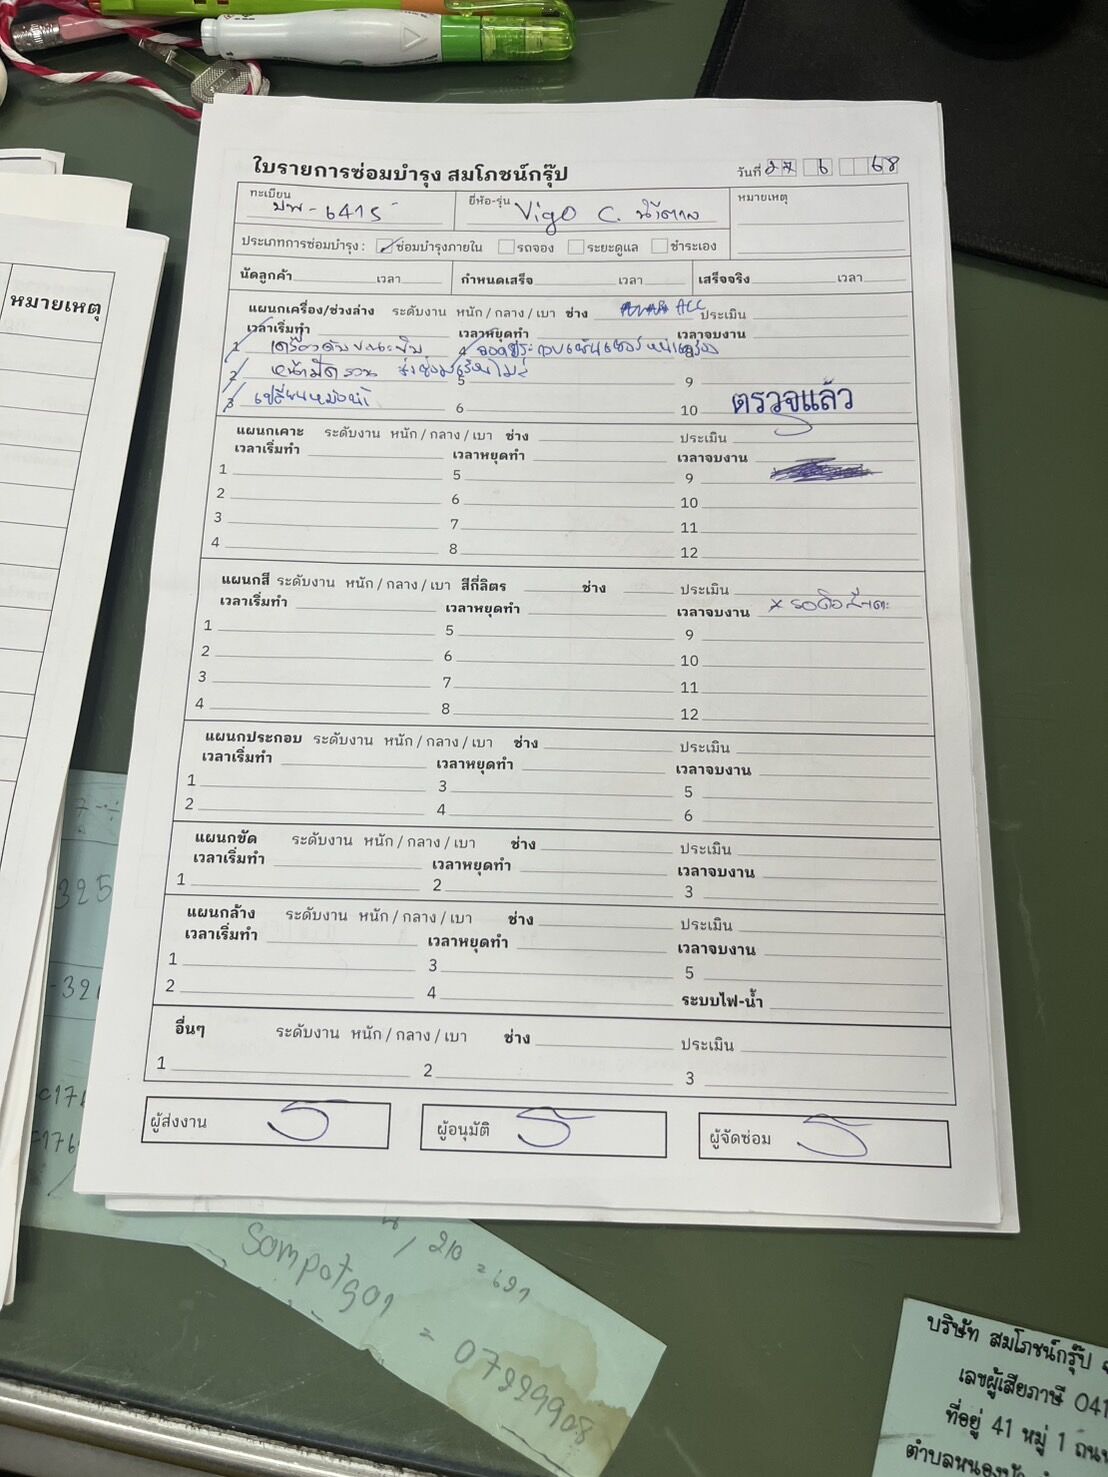 ใบรายการซ่อมบำรุง สมโภชน์กรุ๊ป
วันที่ 27 6 68
ทะเบียน ปพ-6415
ยี่ห้อ-รุ่น Vigo C. น้ำตาล
หมายเหตุ
ประเภทการซ่อมบำรุง : ซ่อมบำรุงภายใน รถจอง ระยะดูแล ชำระเอง
นัดลูกค้า เวลา กำหนดเสร็จ เวลา เสร็จจริง เวลา
แผนกเครื่อง/ช่วงล่าง ระดับงาน หนัก / กลาง / เบา ช่าง ACC ประเมิน
เวลาเริ่มทำ เวลาหยุดทำ เวลาจบงาน
1 4
2 5 9
3 เปลี่ยนหม้อน้ำ 6 10 ตรวจแล้ว
แผนกเคาะ ระดับงาน หนัก / กลาง / เบา ช่าง ประเมิน
เวลาเริ่มทำ เวลาหยุดทำ เวลาจบงาน
1 5 9
2 6 10
3 7 11
4 8 12
แผนกสี ระดับงาน หนัก / กลาง / เบา สีกี่ลิตร ช่าง ประเมิน
เวลาเริ่มทำ เวลาหยุดทำ เวลาจบงาน
1 5 9
2 6 10
3 7 11
4 8 12
แผนกประกอบ ระดับงาน หนัก / กลาง / เบา ช่าง ประเมิน
เวลาเริ่มทำ เวลาหยุดทำ เวลาจบงาน
1 3 5
2 4 6
แผนกขัด ระดับงาน หนัก / กลาง / เบา ช่าง ประเมิน
เวลาเริ่มทำ เวลาหยุดทำ เวลาจบงาน
1 2 3
แผนกล้าง ระดับงาน หนัก / กลาง / เบา ช่าง ประเมิน
เวลาเริ่มทำ เวลาหยุดทำ เวลาจบงาน
1 3 5
2 4 ระบบไฟ-น้ำ
อื่นๆ ระดับงาน หนัก / กลาง / เบา ช่าง ประเมิน
1 2 3
ผู้ส่งงาน ผู้อนุมัติ ผู้จัดซ่อม
หมายเหตุ
325
210 = 691
บริษัท สมโภชน์กรุ๊ป
เลขผู้เสียภาษี 041
ที่อยู่ 41 หมู่ 1